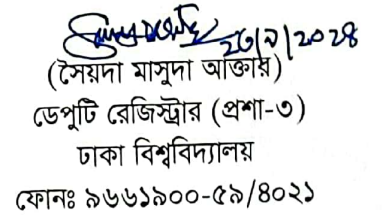 ২৩/৯/২০২৪
(সৈয়দা মাসুদা আক্তার)
ডেপুটি রেজিস্ট্রার (প্রশা-৩)
ঢাকা বিশ্ববিদ্যালয়
ফোনঃ ৯৬৬১৯০০-৫৯/৪০২১